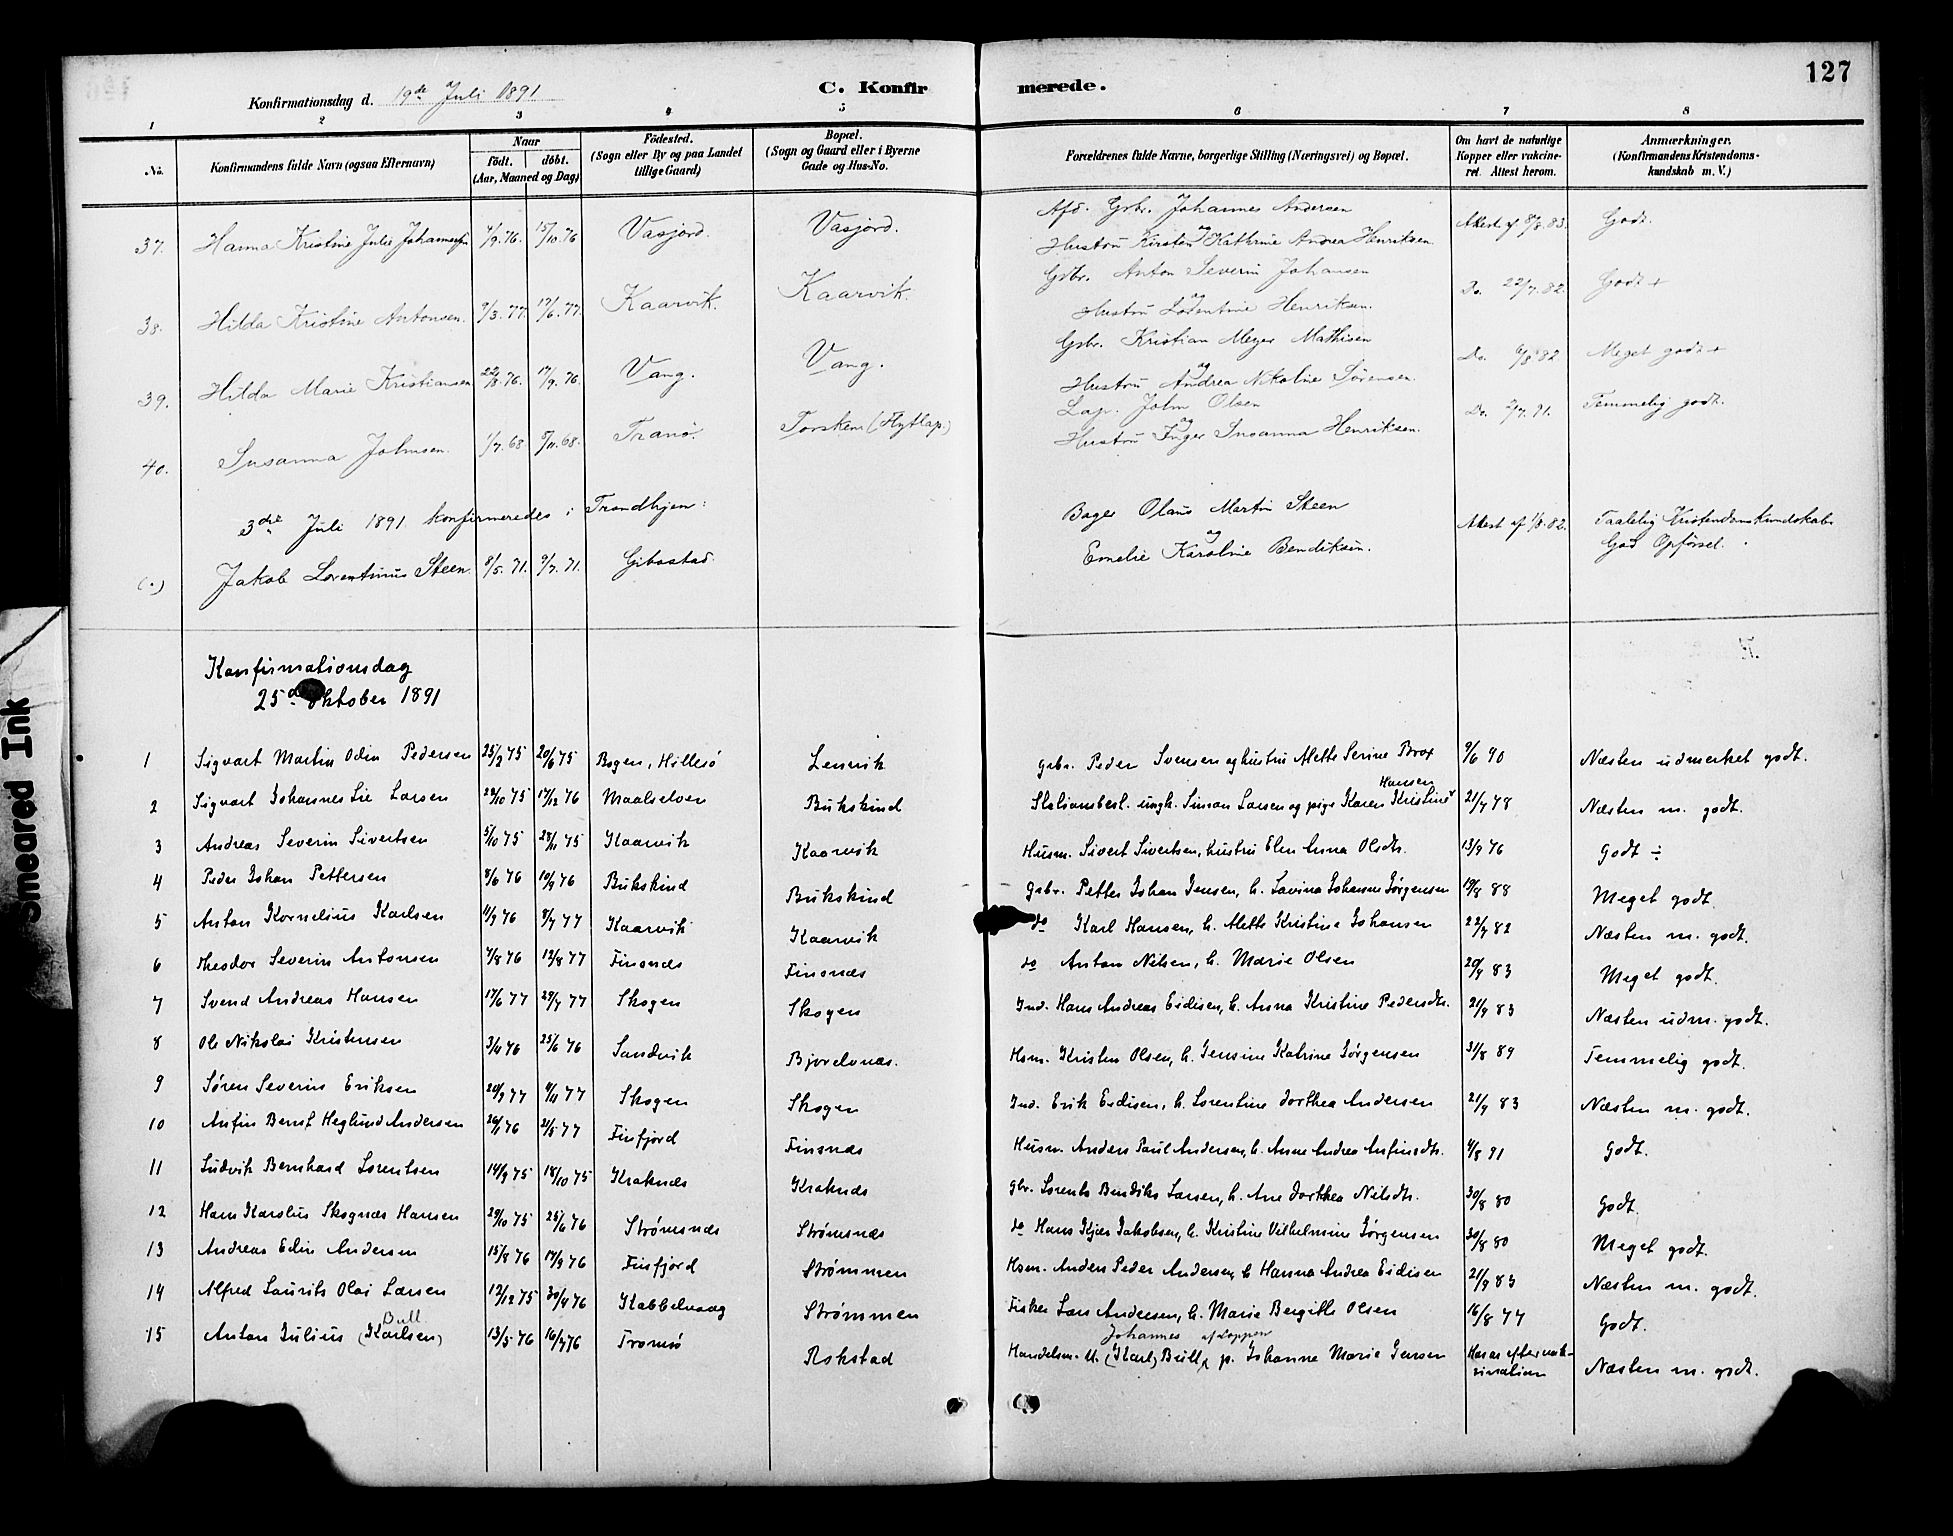 127
Konfirmationsdag d. 19de Juli 1891
C. Konfirmerede.
1 2 3 4 5 6 7 8
No. Konfirmandens fulde Navn (ogsaa Efternavn) Naar født. døbt. (Aar, Maaned og Dag) Fødested. (Sogn eller By og paa Landet tillige Gaard) Bopæl. (Sogn og Gaard eller i Byerne Gade og Hus-No. Forældrenes fulde Navne, borgerlige Stilling (Næringsvei) og Bopæl. Om havt de naturlige Kopper eller vakcineret. Attest herom. Anmærkninger. (Konfirmandens Kristendomskundskab m. V.)
37. Hanna Kristine Julie Johannesen 4/9.76. 15/10.76 Vasjord. Vasjord. Afd. Gbr. Johannes Andersen og Hustru Kirsten Kathrine Andrea Henriksen. Attest af 8/8.83. Godt.
38. Hilda Kristine Antonsen. 9/3.77. 17/6.77. Kaarvik. Kaarvik. Gbr. Anton Severin Johansen og Hustru Lorentine Henriksen. Do. 22/7.82. Godt +
39. Hilda Marie Kristiansen 22/8.76. 17/9.76. Vang. Vang. Gsbr. Kristian Meyer Mathisen og Hustru Andrea Nikoline Sørensen. Do. 6/8 82 Meget godt +
40. Susanna Johnsen. 1/7.68 8/11.68. Tranø. Torsken (Flytlap.) Lap. John Olsen og Hustru Inger Susanna Henriksen. Do. 2/7.91. Temmelig godt.
3die Juli 1891 konfirmeredes i Trondhjem:
(.) Jakob Lorentinus Steen 8/5.71. 9/7.71. Gibostad. Bager Olaus Martin Steen og Emelie Karoline Bendiksen. Attest af 1/8.82. Taalelig Kristendomskundskab. God Opførsel.
Konfirmationsdag
25de Oktober 1891
1 Sigvart Martin Odin Pedersen 25/2 75 20/6 75 Bogen, Hillesø Lenvik Gsbr. Peder Svensen og hustru Mette Serine Brox 9/6 90 Næsten udmerket godt.
2 Sigvart Johannes Lie Larsen 28/10 75 17/12 76 Maalselven Bukskind Stationsbest. ungk. Simon Larsen og pige Karen Kristine Hansen 21/7 78 Næsten m. godt.
3 Andreas Severin Sivertsen 5/10 75 28/11 75 Kaarvik Kaarvik Husm. Sivert Sivertsen, hustru Elen Anna Olsdtr. 13/9 76 Godt ÷
4 Peder Johan Pettersen 8/6 76 10/9 76 Bukskind Bukskind Gsbr. Petter Johan Jensen, h. Lavina Johanne Jørgensen 19/8 88 Meget godt.
5 Anton Kornelius Karlsen 11/9 76 8/7 77 Kaarvik Kaarvik do Karl Hansen, h. Mette Kristine Johansen 22/7 82 Næsten m. godt.
6 Theodor Severin Antonsen 7/8 76 12/8 77 Finsnæs Finsnæs do Anton Nilsen, h. Marie Olsen 20/9 83 Meget godt.
7 Svend Andreas Hansen 17/6 77 29/7 77 Skogen Skogen Ind. Hans Andreas Eidisen, h. Anna Kristine Pedersdtr. 21/9 83 Næsten udm. godt.
8 Ole Nikolai Kristensen 3/4 76 25/6 76 Sandvik Bjorelvnæs. Hsm. Kristen Olsen, h. Jensine Katrine Jørgensen 31/8 89 Temmelig godt.
9 Søren Severin Eriksen 20/9 77 4/11 77 Skogen Skogen Ind. Erik Eidisen, h. Lorentine Dorthea Andersen 21/9 83 Næsten m. godt.
10 Anfin Bernt Heglund Andersen 26/1 76 21/5 77 Finfjord Finsnæs Husm. Anders Paul Andersen, h. Anne Andrea Anfinsdtr. 4/8 91 Godt.
11 Ludvik Bernhard Lorentsen 14/9 75 18/10 75 Kraknæs Kraknæs Gbr. Lorents Bendiks Larsen, h. Ane Dorthea Nilsdtr. 30/8 80 Godt.
12 Hans Karolus Skognæs Hansen 29/10 75 25/6 76 Strømsnæs Strømsnæs do Hans Kjær Jakobsen, h. Kristine Vilhelmine Jørgensen 30/8 80 Meget godt.
13 Andreas Edin Andersen 15/8 76 17/9 76 Finfjord Strømmen Hsm. Anders Peder Andersen, h. Hanna Andrea Eidisen 21/9 83 Næsten m. godt.
14 Alfred Laurits Olai Larsen 12/12 75 30/4 76 Kabbelvaag Strømmen Fisker Lars Andersen, h. Marie Bergitte Olsen 16/8 77 Godt.
15 Anton Julius (Karlsen) Bull 13/5 76 16/7 76 Tromsø Rokstad Handelsm. U. (Karl) Johannes Bull, af Loppen p. Johanna Marie Jensen Har ar efter vakcination Næsten m. godt.
Smeared Ink